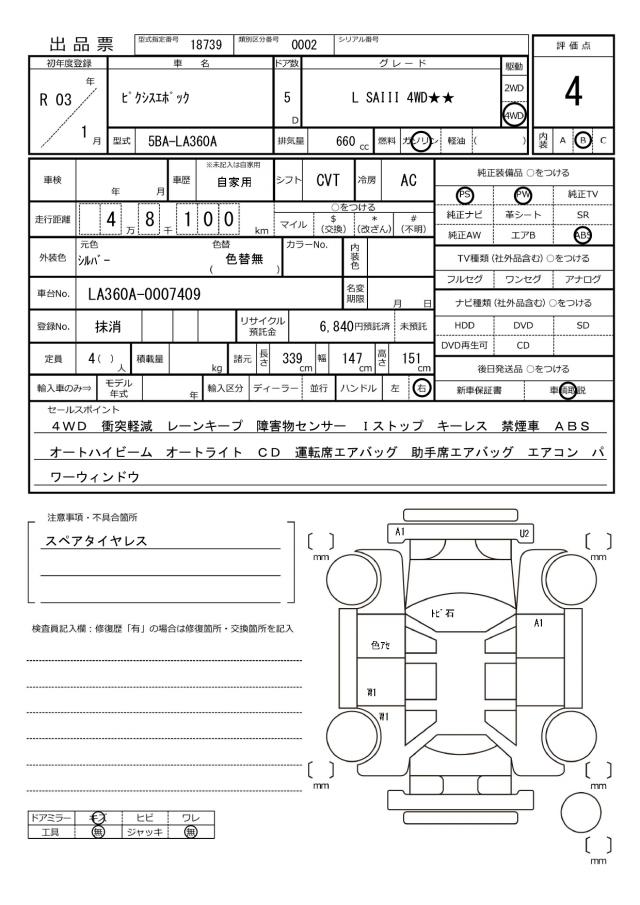 出品票
型式指定番号 18739 類別区分番号 0002 シリアル番号
評価点
4
初年度登録 車名 ドア数 グレード 駆動
R 03 年 1 月
ﾋﾟｸｼｽｴﾎﾟｯｸ
5 D
L SAIII 4WD★★
2WD
4WD
型式 5BA-LA360A 排気量 660 cc 燃料 ガソリン 軽油 ( )
内装 A B C
車検 年 月 車歴 ※未記入は自家用 自家用 シフト CVT 冷房 AC
走行距離 4 万 8 千 1 0 0 km
○をつける
マイル $(交換) *(改ざん) #(不明)
外装色 元色 ｼﾙﾊﾞｰ 色替 ( 色替無 ) カラーNo. 内装色
車台No. LA360A-0007409 名変期限 月 日
登録No. 抹消 リサイクル預託金 6,840円預託済 未預託
定員 4( )人 積載量 kg 諸元 長さ 339cm 幅 147cm 高さ 151cm
輸入車のみ⇒ モデル年式 年 輸入区分 ディーラー 並行 ハンドル 左 右
純正装備品 ○をつける
PS PW 純正TV
純正ナビ 革シート SR
純正AW エアB ABS
TV種類 (社外品含む) ○をつける
フルセグ ワンセグ アナログ
ナビ種類 (社外品含む) ○をつける
HDD DVD SD
DVD再生可 CD
後日発送品 ○をつける
新車保証書 車輌取説
セールスポイント
４ＷＤ 衝突軽減 レーンキープ 障害物センサー Ｉストップ キーレス 禁煙車 ＡＢＳ
オートハイビーム オートライト ＣＤ 運転席エアバッグ 助手席エアバッグ エアコン パ
ワーウィンドウ
注意事項・不具合箇所
スペアタイヤレス
検査員記入欄：修復歴「有」の場合は修復箇所・交換箇所を記入
A1 U2
[ ] mm [ ] mm
ﾄﾋﾞ石
A1
色ｱｾ
W1
W1
[ ] mm [ ] mm
[ ] mm
ドアミラー キズ ヒビ ワレ
工具 無 ジャッキ 無